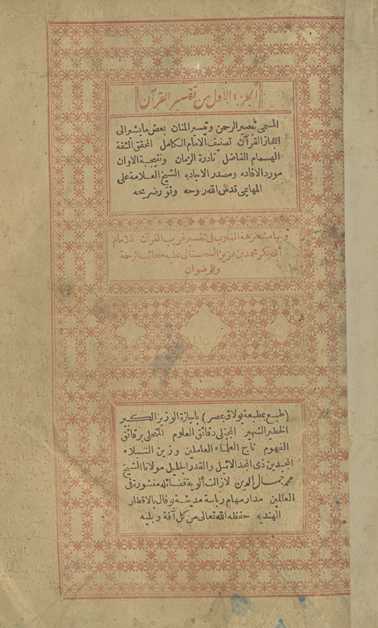 الجزء الاول من تفسير القرآن
المسمى تبصير الرحمن وتيسير المنان بعض ما يشير الى
اعجاز القرآن تصنيف الامام الكامل المحقق الثقة
الهمام الفاضل نادرة الزمان ونتيجة الاوان
مورد الافاده ومصدر الاجاده الشيخ العلامة على
المهايمى قدس الله روحه ونور ضريحه
وبهامشه نزهة القلوب فى تفسير غريب القرآن للامام
أبى بكر محمد بن عزيز السجستانى عليه سحائب الرحمة
والرضوان
(طبع بمطبعة بولاق بمصر) باجازة الوزير الكبير
الخطير الشهير المجلى دقائق العلوم المتحلى برقائق
الفهوم تاج العلماء العاملين وزين النبلاء
المجيدين ذى المجد الاثيل والقدر الجليل مولانا الشيخ
محمد جمال الدين لازالت ألوية فضائله منشورة فى
العالمين مدار مهام رياسة مدينة بوفال بالاقطار
الهنديه حفظه الله تعالى من كل آفة وبليه